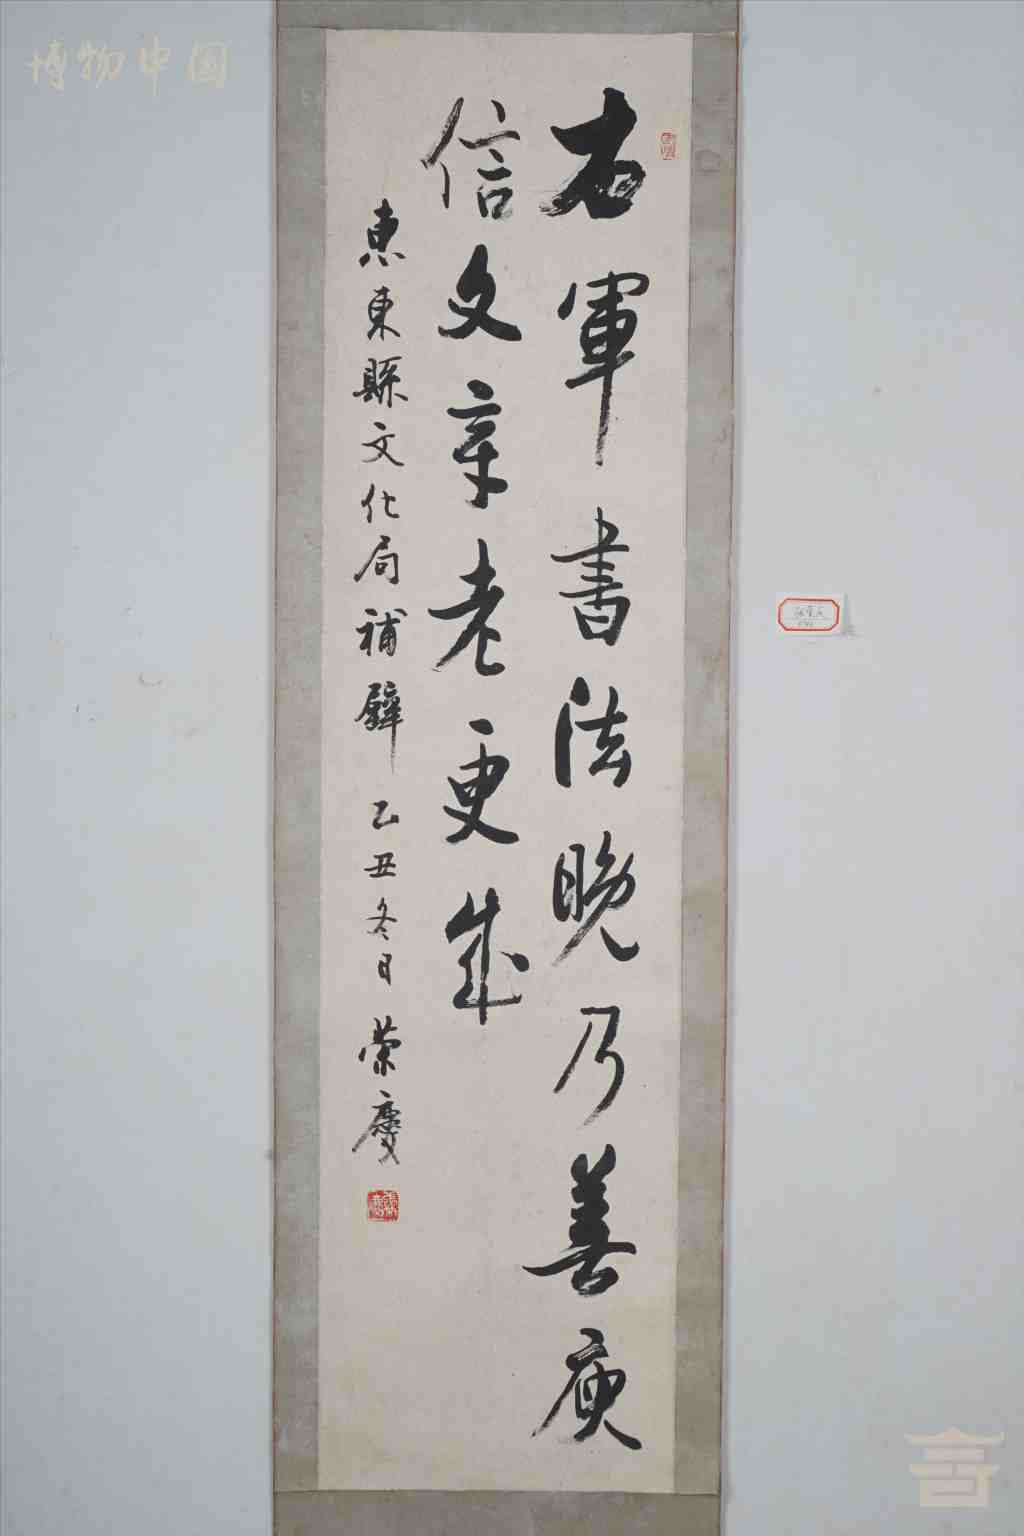 博物中国
右軍書法晚乃善庾
信文章老更成
惠東縣文化局補壁 乙丑冬日 榮慶